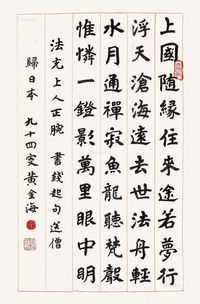 上國隨緣住來途若夢行
浮天滄海遠去世法舟輕
水月通禪寂魚龍聽梵聲
惟憐一鐙影萬里眼中明
法光上人正腕 書錢起句送僧
歸日本 九十四叟黃金海